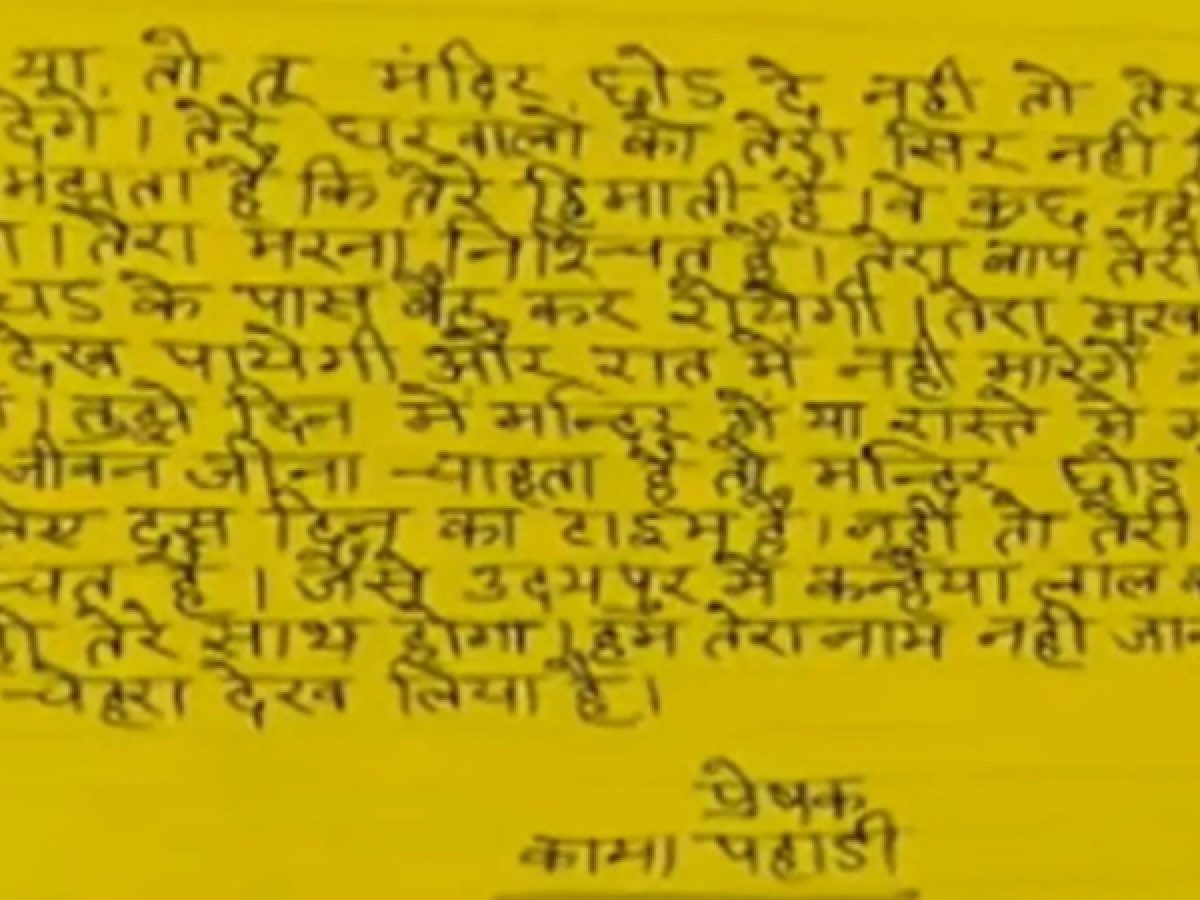 या तो तू मंदिर छोड दे नही तो तेर
देगें । तेरे घरवालो को तेरा सिर नही
मझता है कि तेरे हिमाती है । वे कुछ नही
। तेरा मरना निश्चित है । तेरा बाप तेरी
धड के पास बैठ कर रोयेगी । तेरा मुख
देख पायेगी और रात में नही मारेगें
। तुझे दिन में मन्दिर में या रास्ते में
जीवन जीना चाहता है तो मन्दिर छोड
लिए दस दिन का टाइम है । नही तो तेरी
है । जैसे उदयपुर में कन्हैया लाल
तेरे साथ होगा । हम तेरा नाम नही जान
चेहरा देख लिया है ।
प्रेषक
कामा पहाडी